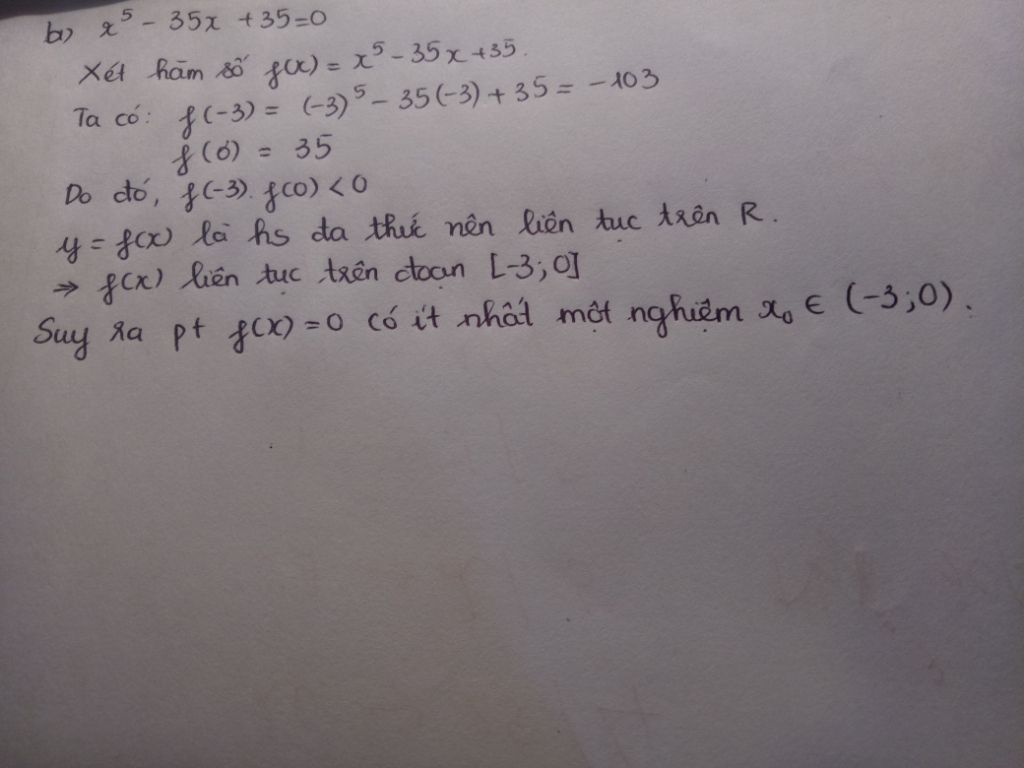 b) x⁵ - 35x + 35 = 0
Xét hàm số f(x) = x⁵ - 35x + 35.
Ta có: f(-3) = (-3)⁵ - 35(-3) + 35 = -103
f(0) = 35
Do đó, f(-3). f(0) < 0
y = f(x) là hs đa thức nên liên tục trên R.
⇒ f(x) liên tục trên đoạn [-3; 0]
Suy ra pt f(x) = 0 có ít nhất một nghiệm x₀ ∈ (-3; 0).